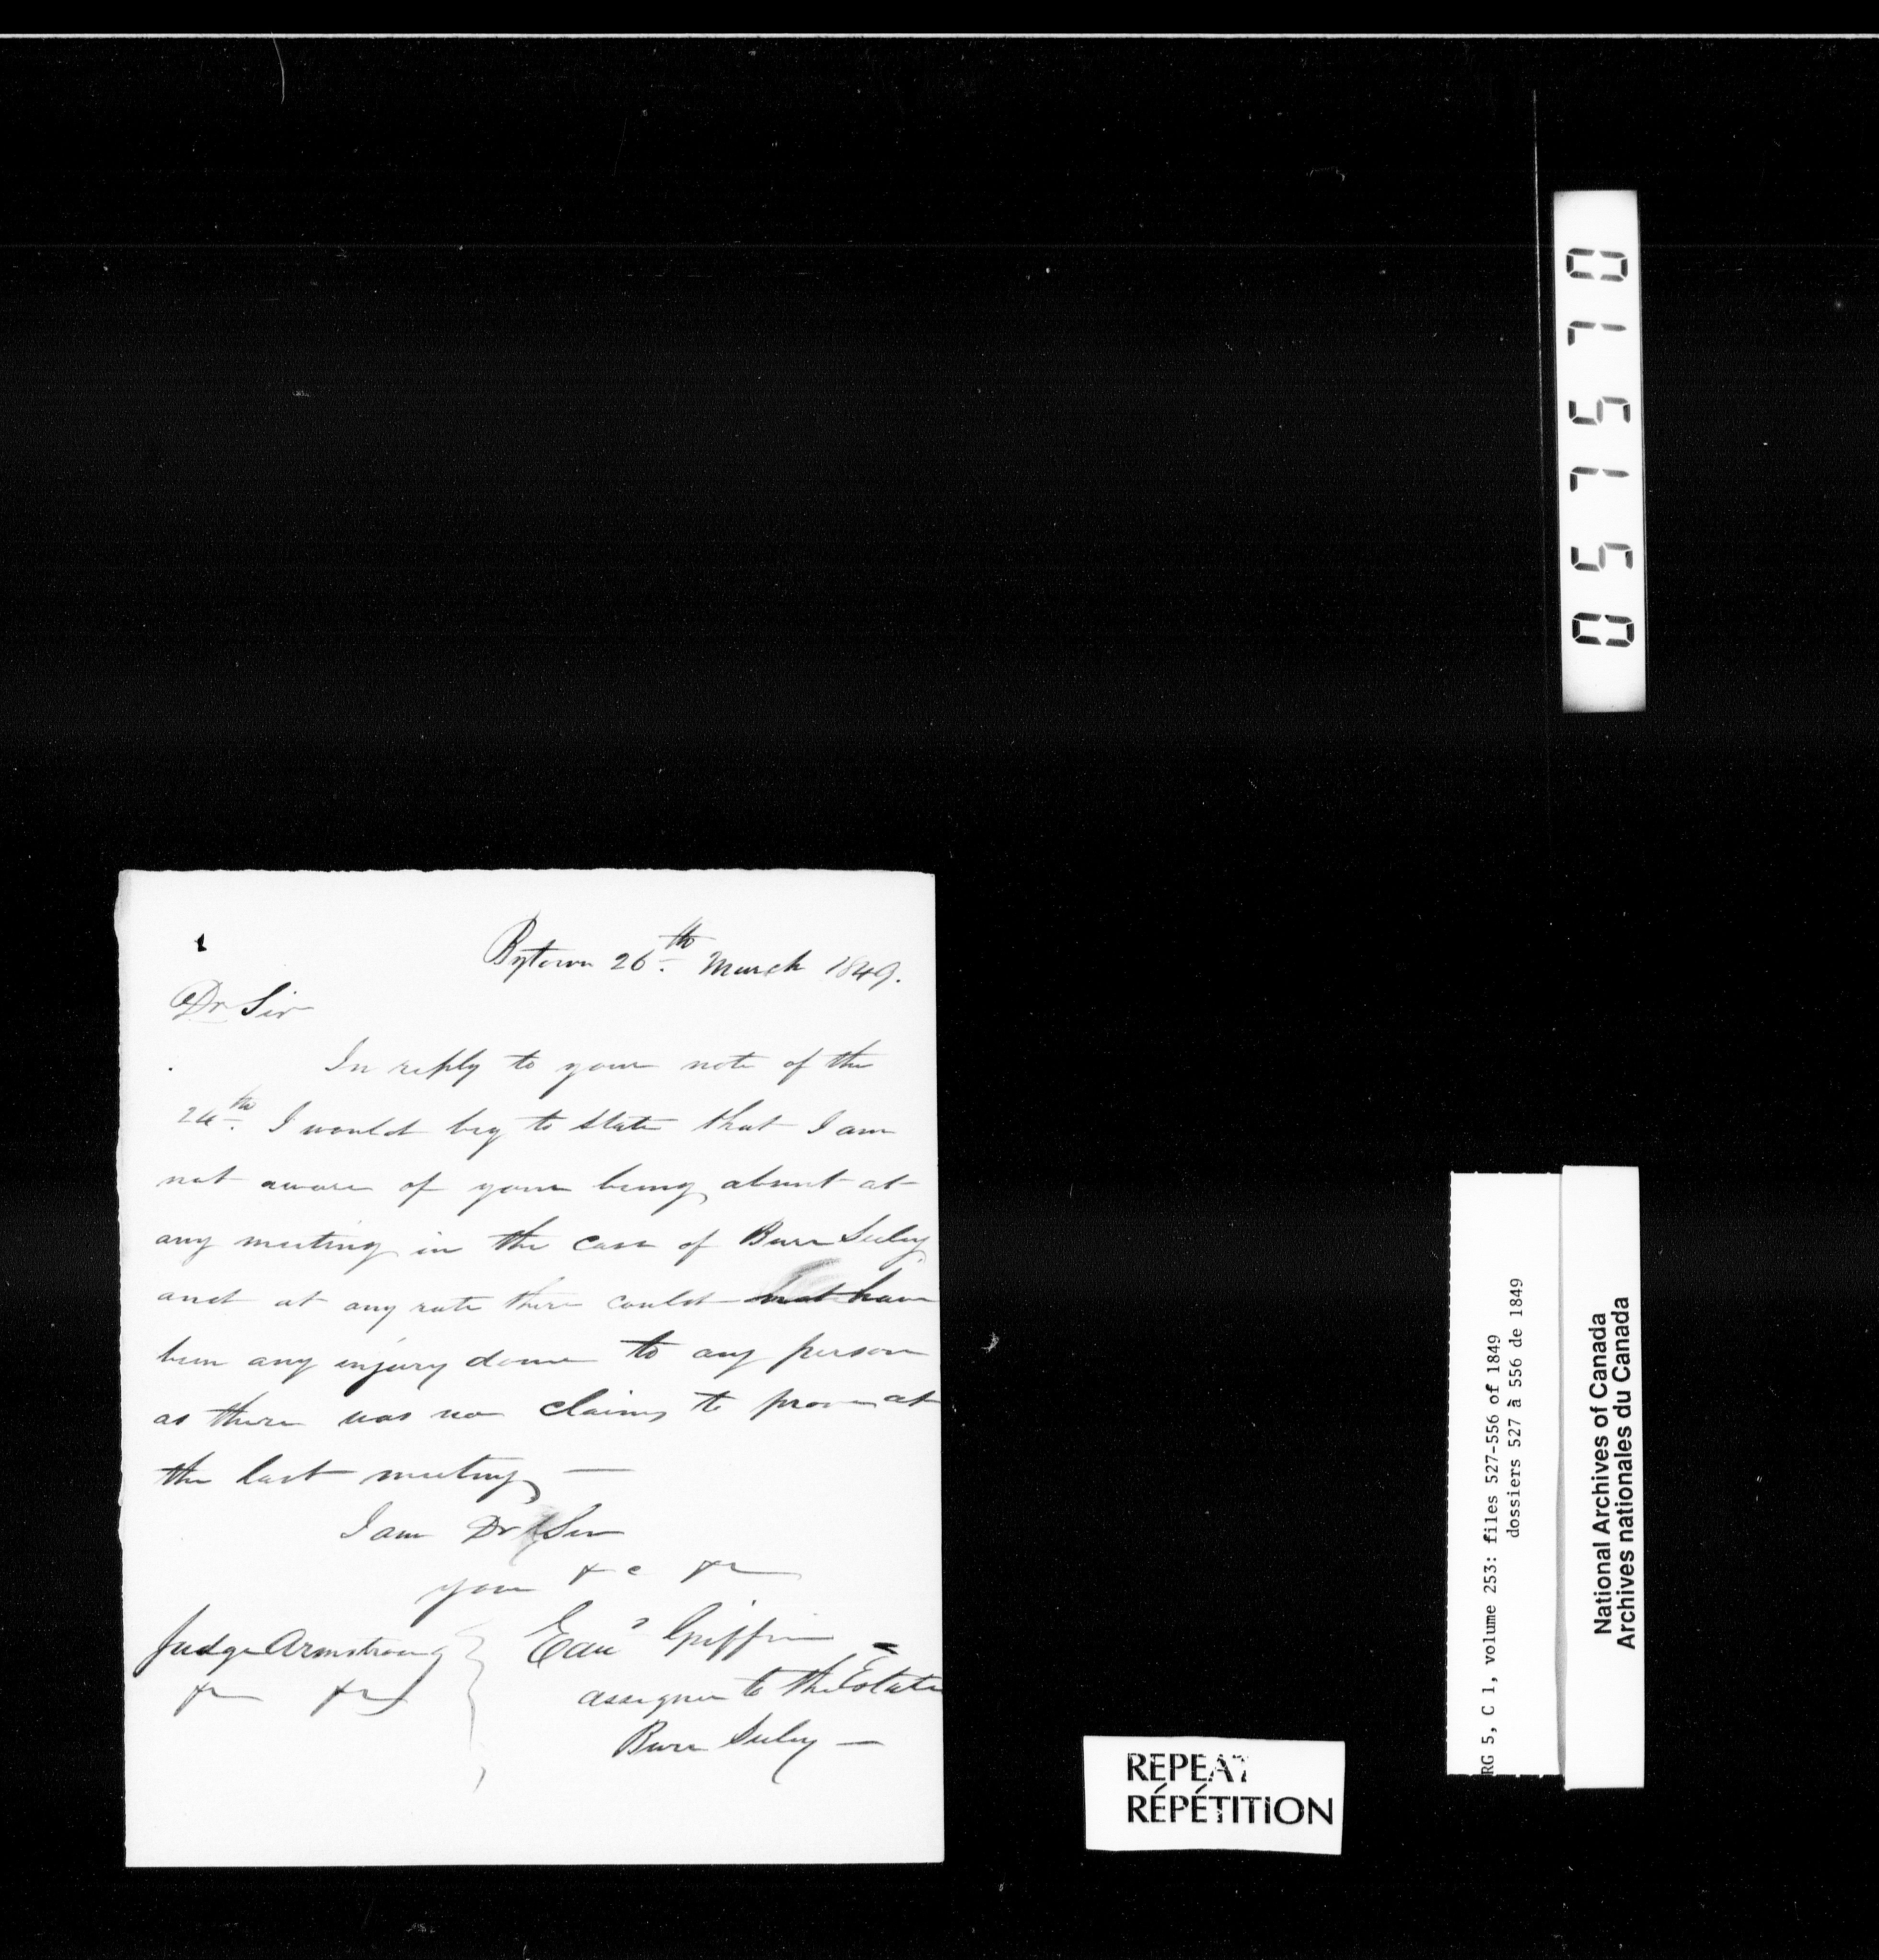 Bytown 26th. March 1849.
Dr Sir
In reply to your note of the
24th. I would beg to state that I am
not aware of your being absent at
any meeting in the case of Burr Seeley
and at any rate there could not have
been any injury done to any person
as there was no claims to prove at
the last meeting —
I am Dr Sir
your &c &c
Judge Armstrong
&c &c
Griffin
assignee to the Estate
Burr Seeley —
057570
RG 5, C 1, volume 253: files 527-556 of 1849
dossiers 527 à 556 de 1849
National Archives of Canada
Archives nationales du Canada
REPEAT
RÉPÉTITION